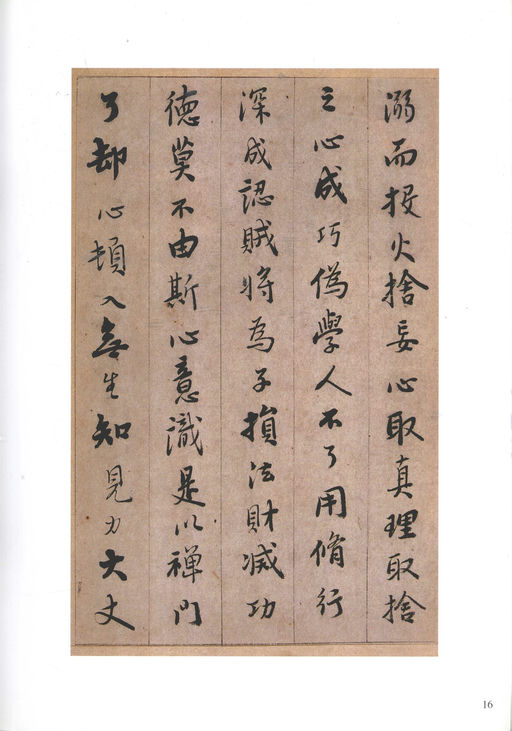 溺而投火捨妄心取真理取捨
之心成巧偽學人不了用脩行
深成認賊將為子損法財減功
德莫不由斯心意識是以禪門
了却心頓入無生知見力大丈
16